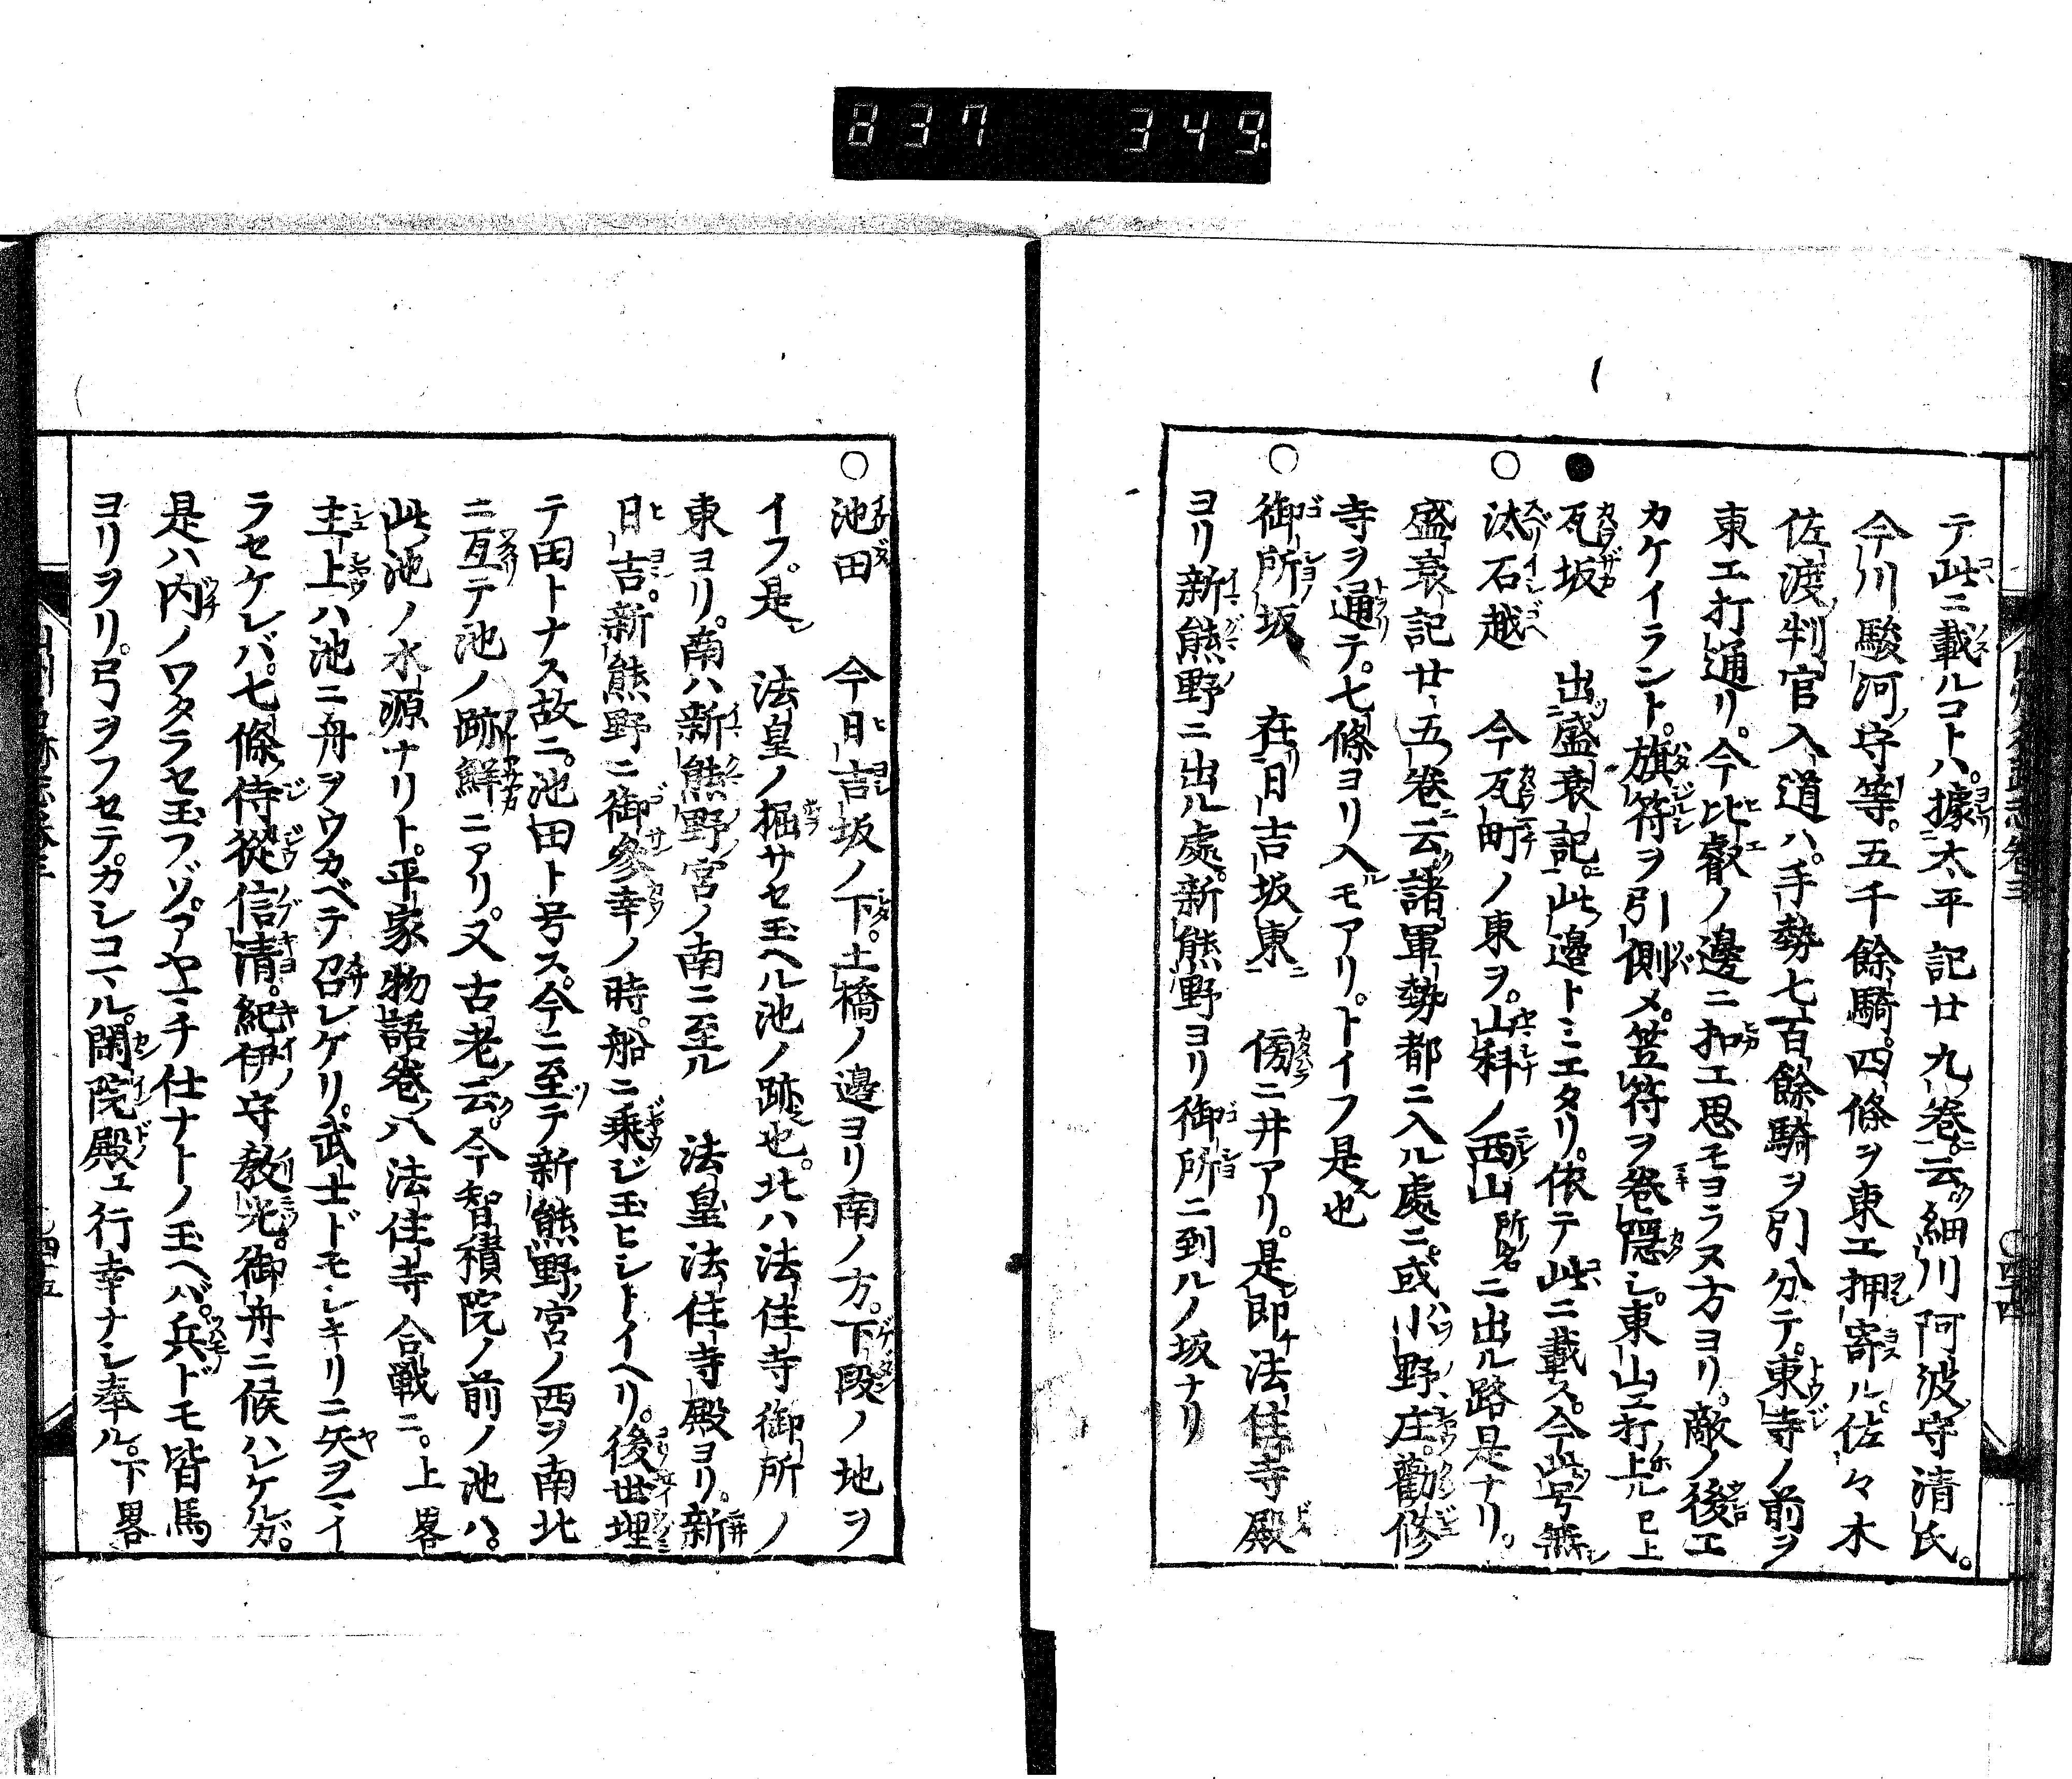 837 349.
テ此ニ載ルコトハ。據太平記廿九巻ニ云。細川阿波守清氏。
今川駿河守等。五千餘騎。四條ヲ東エ押寄ル。佐々木
佐渡判官入道ハ。手勢七百餘騎ヲ引分テ。東寺ノ前ヲ
東エ打通リ。今比叡ノ邊ニ扣エ思モヨラヌ方ヨリ。敵ノ後エ
カケイラント。旗符ヲ引側メ。笠符ヲ巻隠シ。東山エ打上ル 已上
●瓦坂 出盛衰記ニ。此邊トミエタリ。依テ此ニ載ス。今此号無シ
○汰石越 今瓦町ノ東ヲ。山科ノ西山所名ニ出ル路是ナリ。
盛衰記廿五巻ニ云。諸軍勢都ニ入ル處ニ。或小野庄。勸修
寺ヲ通テ。七條ヨリ入ルモアリ。トイフ是也
○御所坂 在日吉坂東ニ 傍ニ井アリ。是即チ法住寺殿
ヨリ新熊野ニ出ル處。新熊野ヨリ御所ニ到ルノ坂ナリ
○池田 今日吉坂ノ下。土橋ノ邊ヨリ南ノ方。下段ノ地ヲ
イフ。是 法皇ノ掘サセ玉ヘル池ノ跡也。北ハ法住寺御所ノ
東ヨリ。南ハ新熊野宮ノ南ニ至ル 法皇法住寺殿ヨリ。新
日吉。新熊野ニ御參幸ノ時。船ニ乗ジ玉ヒシトイヘリ。後世埋
テ田トナス故ニ。池田ト号ス。今ニ至テ新熊野宮ノ西ヲ南北
ニ亙テ池ノ跡鮮ニアリ。又古老云。今智積院ノ前ノ池ハ。
此池ノ水源ナリト。平家物語巻八法住寺合戰ニ。上畧
主上ハ池ニ舟ヲウカベテ召レケリ。武士ドモシキリニ矢ヲイ
ラセケレバ。七條侍從信清。紀伊守教光。御舟ニ候ハレケルガ。
是ハ内ノワタラセ玉フゾ。アヤマチ仕ナトノ玉ヘバ。兵ドモ皆馬
ヨリヲリ。弓ヲフセテカシコマル。閑院殿エ行幸ナシ奉ル。下畧